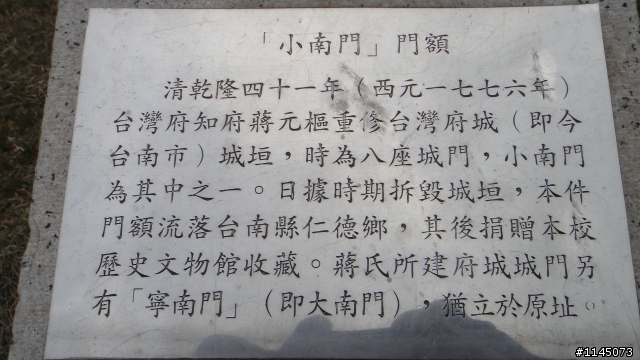 「小南門」門額
清乾隆四十一年（西元一七七六年）
台灣府知府蔣元樞重修台灣府城（即今
台南市）城垣，時為八座城門，小南門
為其中之一。日據時期拆毀城垣，本件
門額流落台南縣仁德鄉，其後捐贈本校
歷史文物館收藏。蔣氏所建府城城門另
有「寧南門」（即大南門），猶立於原址。
#1145073